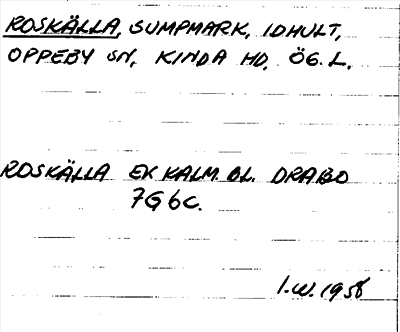 ROSKÄLLA, SUMPMARK, IDHULT,
OPPEBY SN, KINDA HD, ÖG. L.
ROSKÄLLA EK KALM. BL. DRABO
7G6C.
I.W. 1958